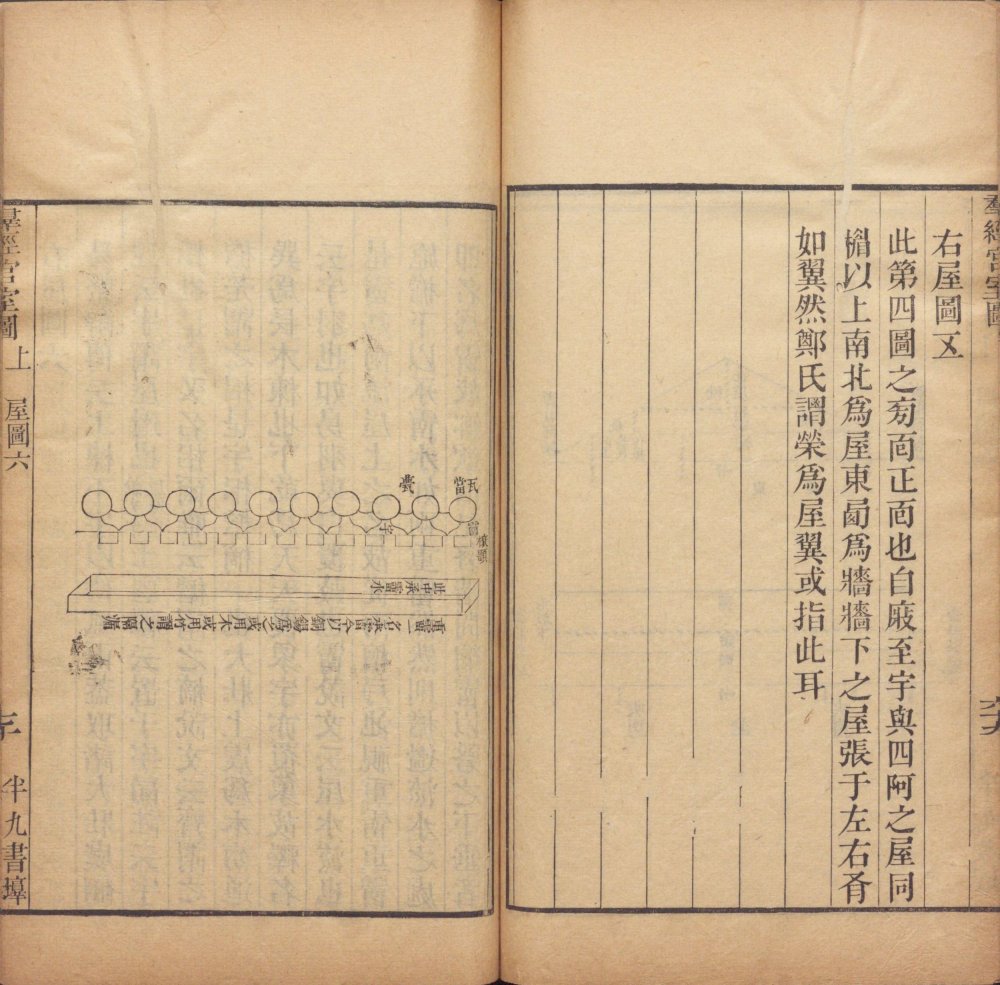 羣經宮室圖
右屋圖五
此第四圖之旁面正面也自庪至宇與四阿之屋同
楣以上南北爲屋東西爲牆牆下之屋張于左右脊
如翼然鄭氏謂榮爲屋翼或指此耳
瓦當
甍
宇
霤
椽頭
此中承霤水
重霤一名承霤今以銅錫爲之或用木或用竹謂之隔漏
羣經宮室圖 上 屋圖六
半九書塾